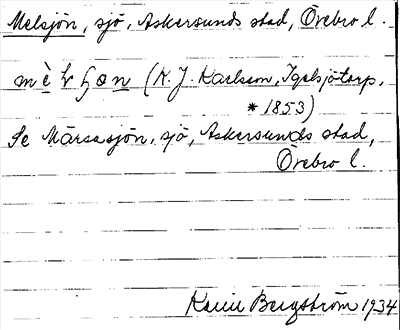 Melsjön, sjö, Askersunds stad, Örebro l.
(K. J. Karlsson, Igelsjötorp,
* 1853)
Se Mårsasjön, sjö, Askersunds stad,
Örebro l.
Karin Bergström 1934